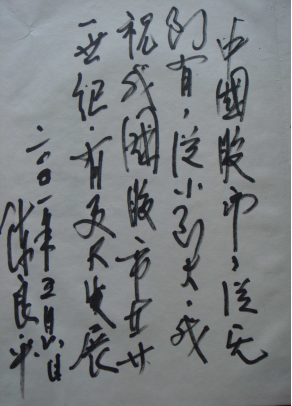 中國股市,從无
到有,從小到大,我
祝我國股市廿
一世纪,有更大发展
二〇〇一年五月日
陈良平